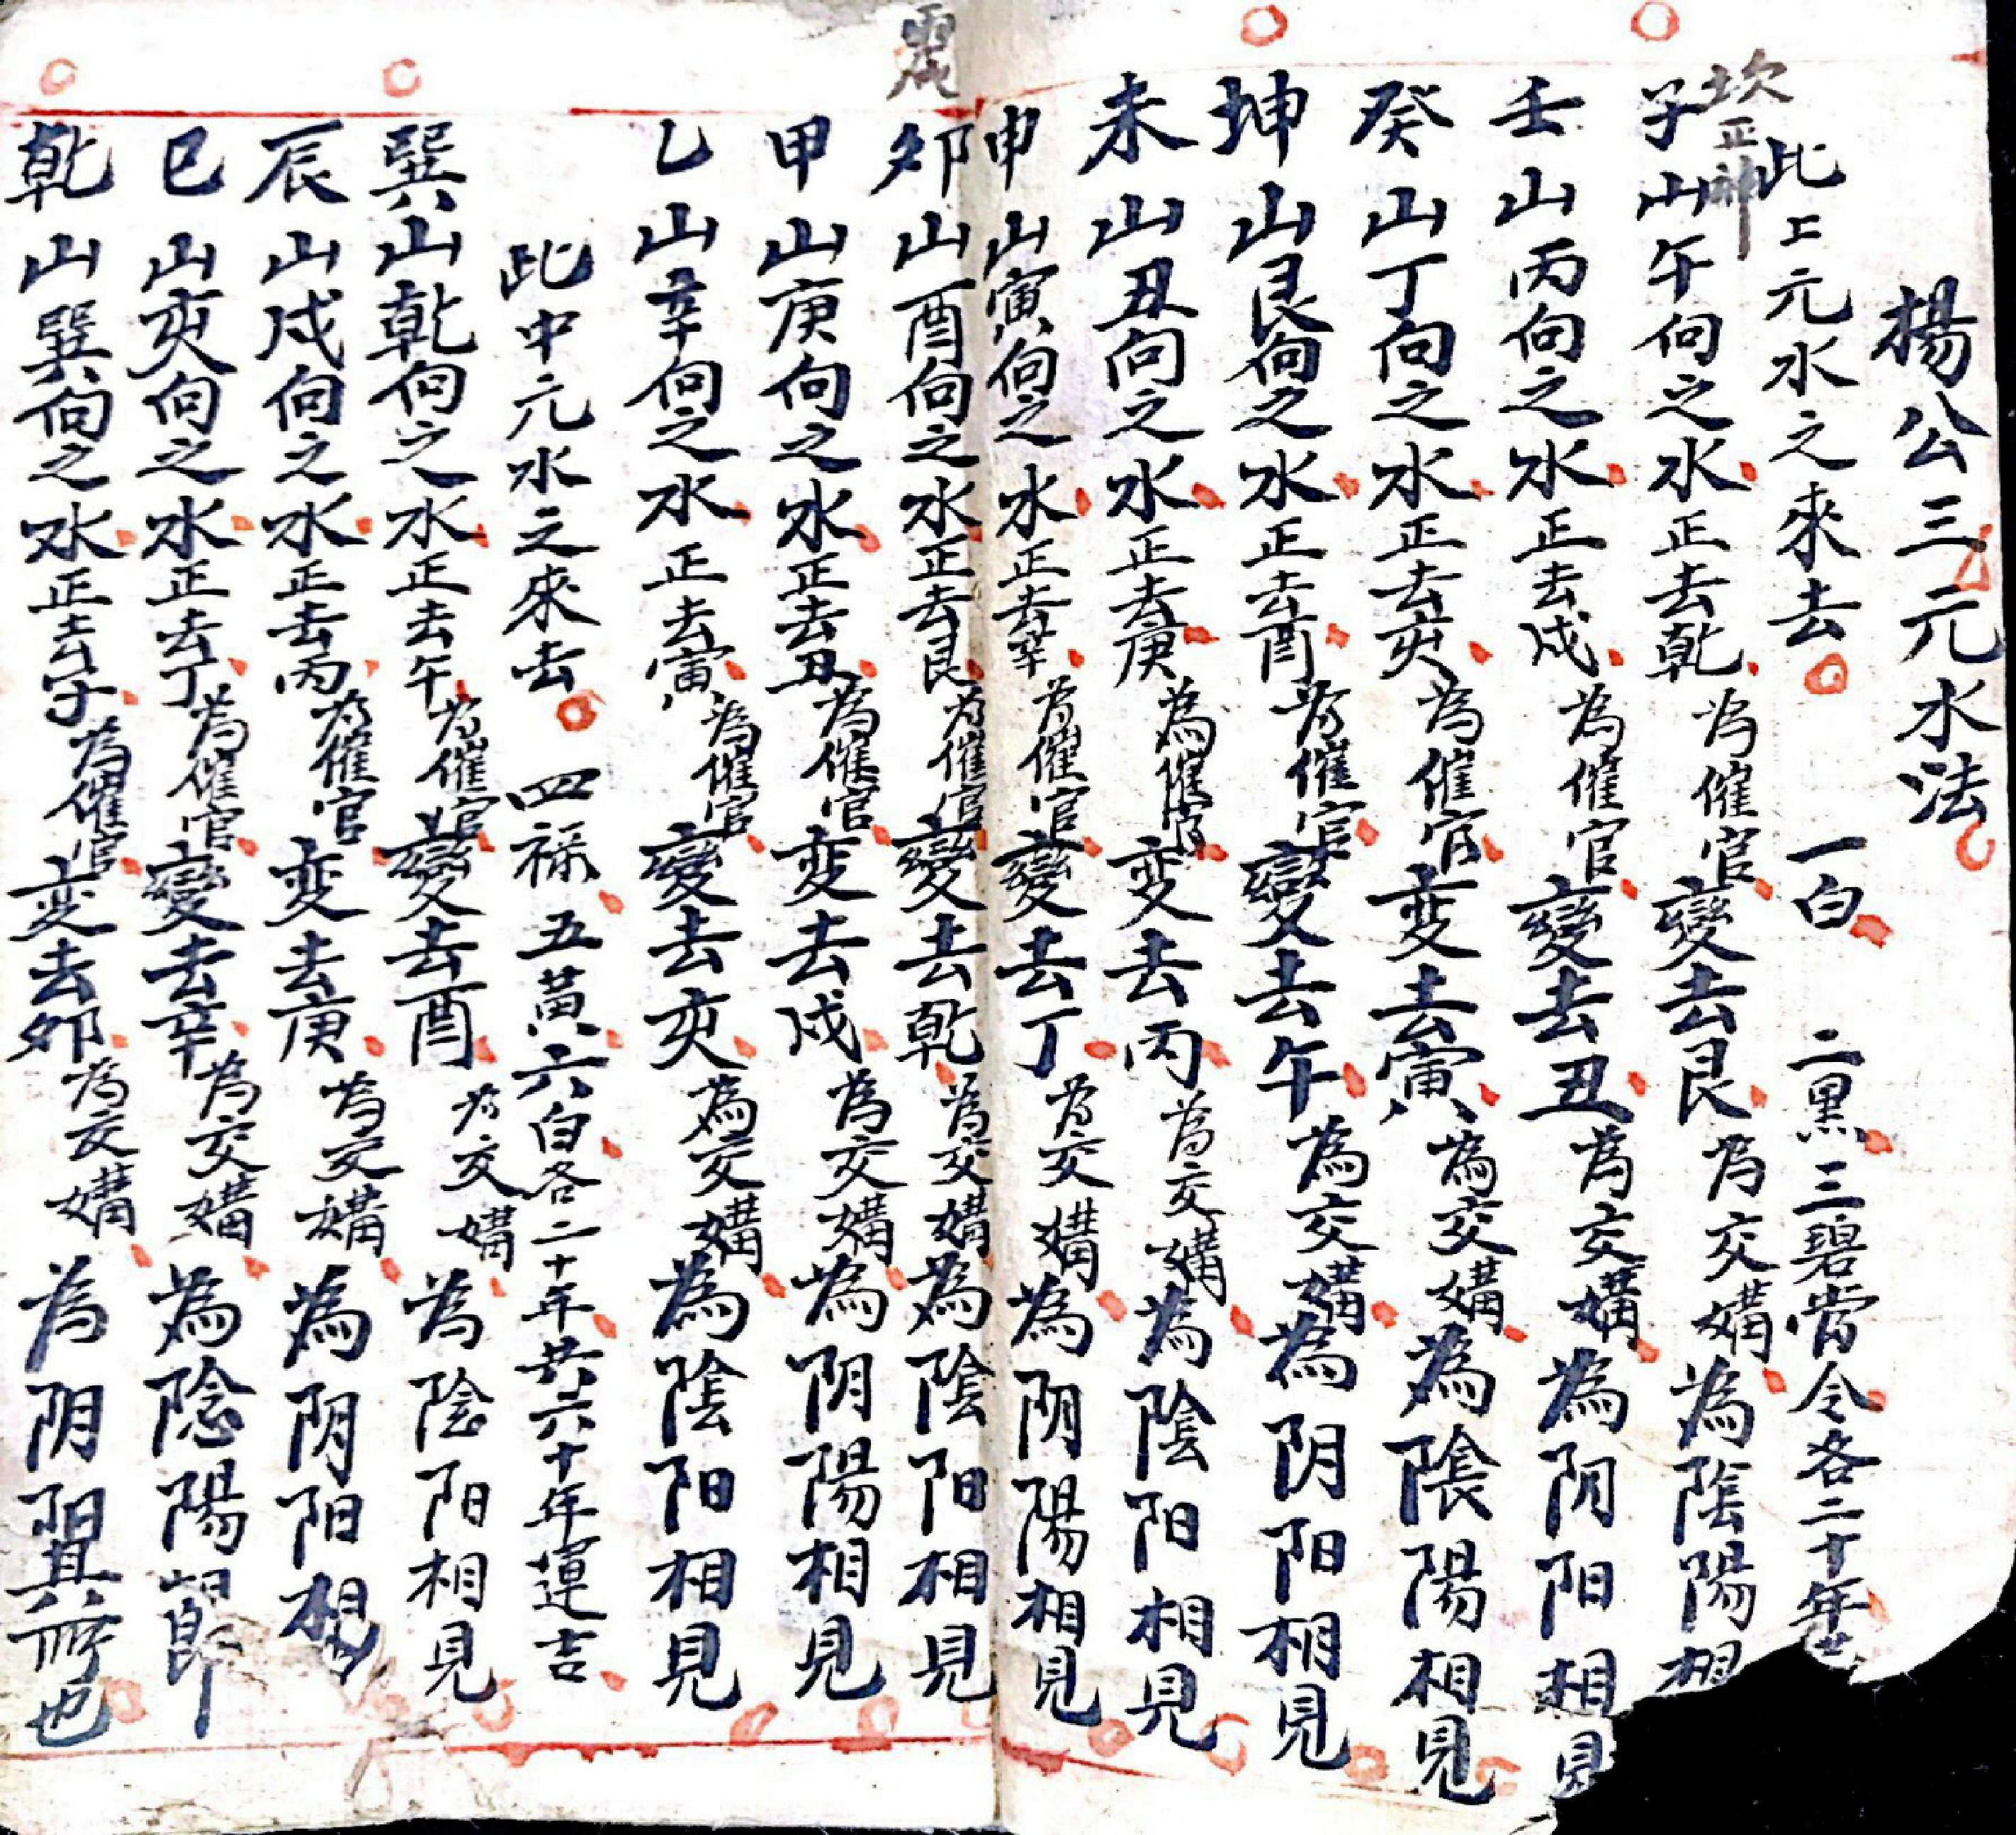 楊公三元水法
此上元水之來去 一白 二黑 三碧當令各二十年
坎
正神
子山午向之水正去乾為催官變去艮為交媾為陰陽相
壬山丙向之水正去戌為催官變去丑為交媾為阴阳相見
癸山丁向之水正去亥為催官变去寅為交媾為陰陽相見
坤山艮向之水正去酉為催官變去午為交媾為阴阳相見
未山丑向之水正去庚為催官变去丙為交媾為陰阳相見
申山寅向之水正去辛為催官變去丁為交媾為阴陽相見
震
卯山酉向之水正去艮為催官變去乾為交媾為陰阳相見
甲山庚向之水正去丑為催官变去戌為交媾為阴陽相見
乙山辛向之水正去寅為催官變去亥為交媾為陰阳相見
此中元水之來去 四祿 五黃六白各二十年共六十年運吉
巽山乾向之水正去午為催官變去酉為交媾為陰阳相見
辰山戌向之水正去丙為催官变去庚為交媾為阴阳相
巳山亥向之水正去丁為催官變去辛為交媾為陰陽
乾山巽向之水正去子為催官变去卯為交媾為阴阳其也